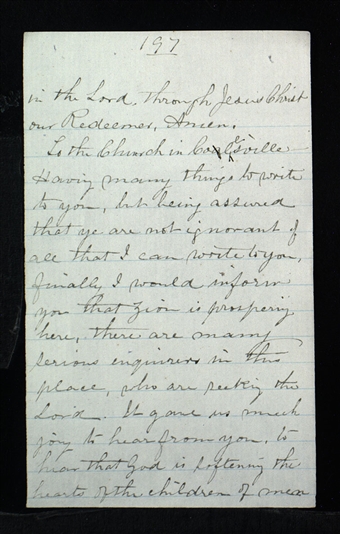 197
in the Lord, through Jesus Christ
our Redeemer, Amen.
To the Church in Colesville
Having many things to write
to you, but being assured
that ye are not ignorant of
all that I can write to you,
finally I would inform
you that Zion is prospering
here, there are many
serious enquirers in this
place, who are seeking the
Lord. It gave us much
joy to hear from you, to
hear that God is softening the
hearts of the children of men